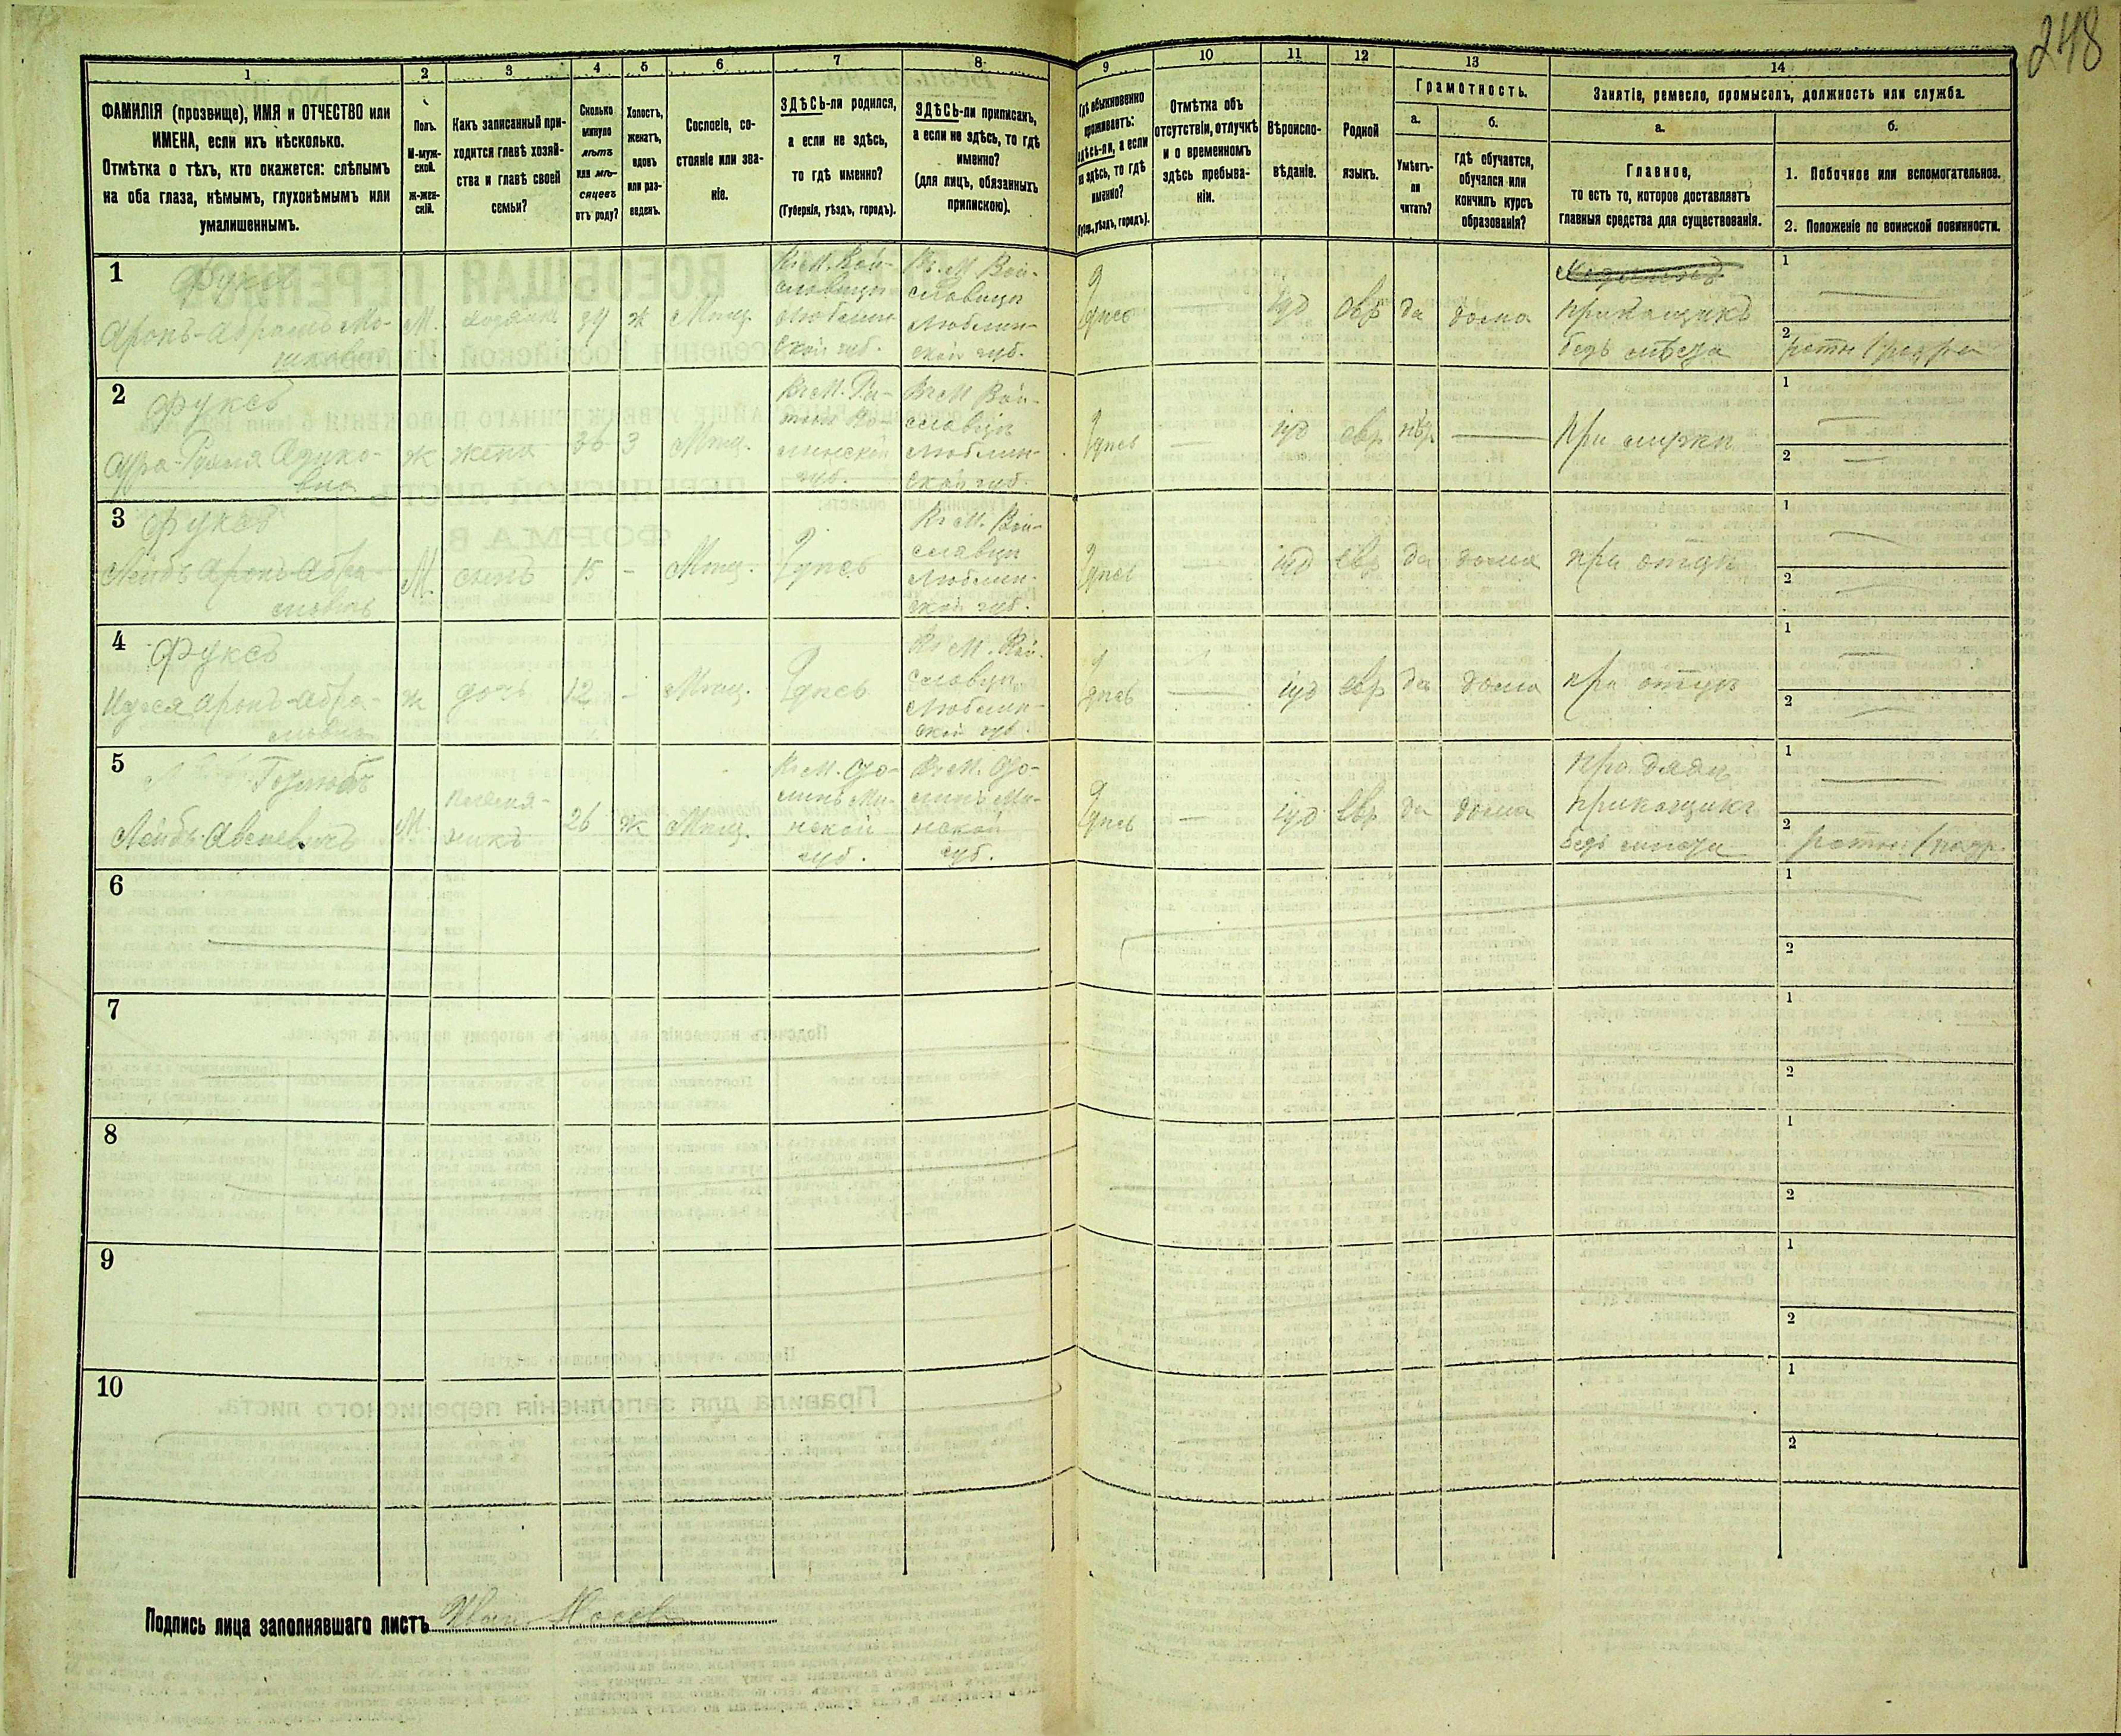 248
1
2
3
4
5
6
7
8
9
10
11
12
13
14
ФАМИЛІЯ (прозвище), ИМЯ и ОТЧЕСТВО или
ИМЕНА, если ихъ нѣсколько.
Отмѣтка о тѣхъ, кто окажется: слѣпымъ
на оба глаза, нѣмымъ, глухонѣмымъ или
умалишеннымъ.
Полъ.
М-муж-
ской.
ж-жен-
скій.
Какъ записанный при-
ходится главѣ хозяй-
ства и главѣ своей
семьи?
Сколько
минуло
лѣтъ
или мѣ-
сяцевъ
отъ роду?
Холостъ,
женатъ,
вдовъ
или раз-
веденъ.
Сословіе, со-
стояніе или зва-
ніе.
ЗДѢСЬ-ли родился,
а если не здѣсь,
то гдѣ именно?
(Губернія, уѣздъ, городъ).
ЗДѢСЬ-ли приписанъ,
а если не здѣсь, то гдѣ
именно?
(для лицъ, обязанныхъ
припискою).
Гдѣ обыкновенно
проживаетъ:
здѣсь-ли, а если
не здѣсь, то гдѣ
именно?
(Губ., уѣздъ, городъ).
Отмѣтка объ
отсутствіи, отлучкѣ
и о временномъ
здѣсь пребыва-
ніи.
Вѣроиспо-
вѣданіе.
Родной
языкъ.
Грамотность.
а.
Умѣетъ-
ли
читать?
б.
гдѣ обучается,
обучался или
кончилъ курсъ
образованія?
Занятіе, ремесло, промыселъ, должность или служба.
а.
Главное,
то есть то, которое доставляетъ
главныя средства для существованія.
б.
1. Побочное или вспомогательное.
2. Положеніе по воинской повинности.
1
Фуксъ
Аронъ-Абрамъ Мо-
М.
хозяинъ
39
ж
Мѣщ.
Въ М. Вой-
славицы
Люблин-
ской губ.
Въ М. Вой-
славицы
Люблин-
ской губ.
Здѣсь
іуд
евр
да
дома
прикащикъ
безъ мѣста
1
2
2
Фуксъ
ж
жена
36
З
Мѣщ.
губ.
Въ М. Вой-
славицы
Люблин-
ской губ.
Здѣсь
іуд
евр
нѣт
при мужѣ
1
2
3
Фуксъ
Лейбъ Аронъ-Абра-
мовичъ
М.
сынъ
15
Мѣщ.
Здѣсь
Въ М. Вой-
славицы
Люблин-
ской губ.
Здѣсь
іуд
евр
да
дома
при отцѣ
1
2
4
Фуксъ
Аронъ-Абра-
ж
дочь
12
Мѣщ.
Здѣсь
Въ М. Вой-
славицы
Люблин-
ской губ.
Здѣсь
іуд
евр
да
дома
при отцѣ
1
2
5
Лейбъ
М.
племя-
никъ
26
ж
Мѣщ.
Ми-
нской
губ.
Ми-
нской
губ.
Здѣсь
іуд
евр
да
дома
при дядѣ
прикащикъ
безъ мѣста
1
2
6
1
2
7
1
2
8
1
2
9
1
2
10
1
2
Подпись лица заполнявшаго листъ